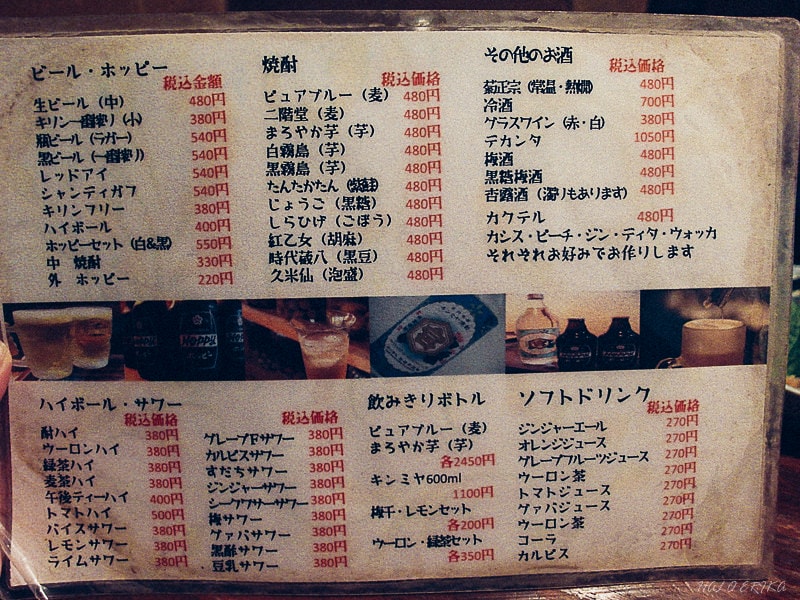 ビール・ホッピー
税込金額
生ビール（中） 480円
キリン一番搾り（小） 380円
瓶ビール（ラガー） 540円
黒ビール（一番搾り） 540円
レッドアイ 540円
シャンディガフ 540円
キリンフリー 380円
ハイボール 400円
ホッピーセット（白&黒） 550円
中 焼酎 330円
外 ホッピー 220円
焼酎
税込価格
ピュアブルー（麦） 480円
二階堂（麦） 480円
まろやか芋（芋） 480円
白霧島（芋） 480円
黒霧島（芋） 480円
たんたかたん（紫蘇） 480円
じょうご（黒糖） 480円
しらひげ（ごぼう） 480円
紅乙女（胡麻） 480円
時代破八（黒豆） 480円
久米仙（泡盛） 480円
その他のお酒
税込価格
菊正宗（常温・熱燗） 480円
冷酒 700円
グラスワイン（赤・白） 380円
デカンタ 1050円
梅酒 480円
黒糖梅酒 480円
杏露酒（濁りもあります） 480円
カクテル 480円
カシス・ピーチ・ジン・ディタ・ウォッカ
それぞれお好みでお作りします
HOPPY
ハイボール・サワー
税込価格
酎ハイ 380円
ウーロンハイ 380円
緑茶ハイ 380円
麦茶ハイ 380円
午後ティーハイ 400円
トマトハイ 500円
バイスサワー 380円
レモンサワー 380円
ライムサワー 380円
税込価格
グレープFサワー 380円
カルピスサワー 380円
すだちサワー 380円
ジンジャーサワー 380円
シークワサーサワー 380円
梅サワー 380円
グァバサワー 380円
黒酢サワー 380円
豆乳サワー 380円
飲みきりボトル
ピュアブルー（麦）
まろやか芋（芋）
各2450円
キンミヤ600ml
1100円
梅干・レモンセット
各200円
ウーロン・緑茶セット
各350円
ソフトドリンク
税込価格
ジンジャーエール 270円
オレンジジュース 270円
グレープフルーツジュース 270円
ウーロン茶 270円
トマトジュース 270円
グァバジュース 270円
ウーロン茶 270円
コーラ 270円
カルピス 270円